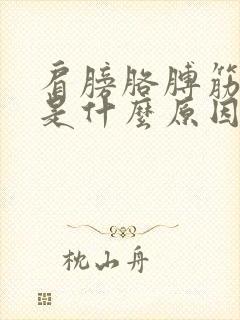 肩膀胳膊筋
是什麼原因
枕山舟